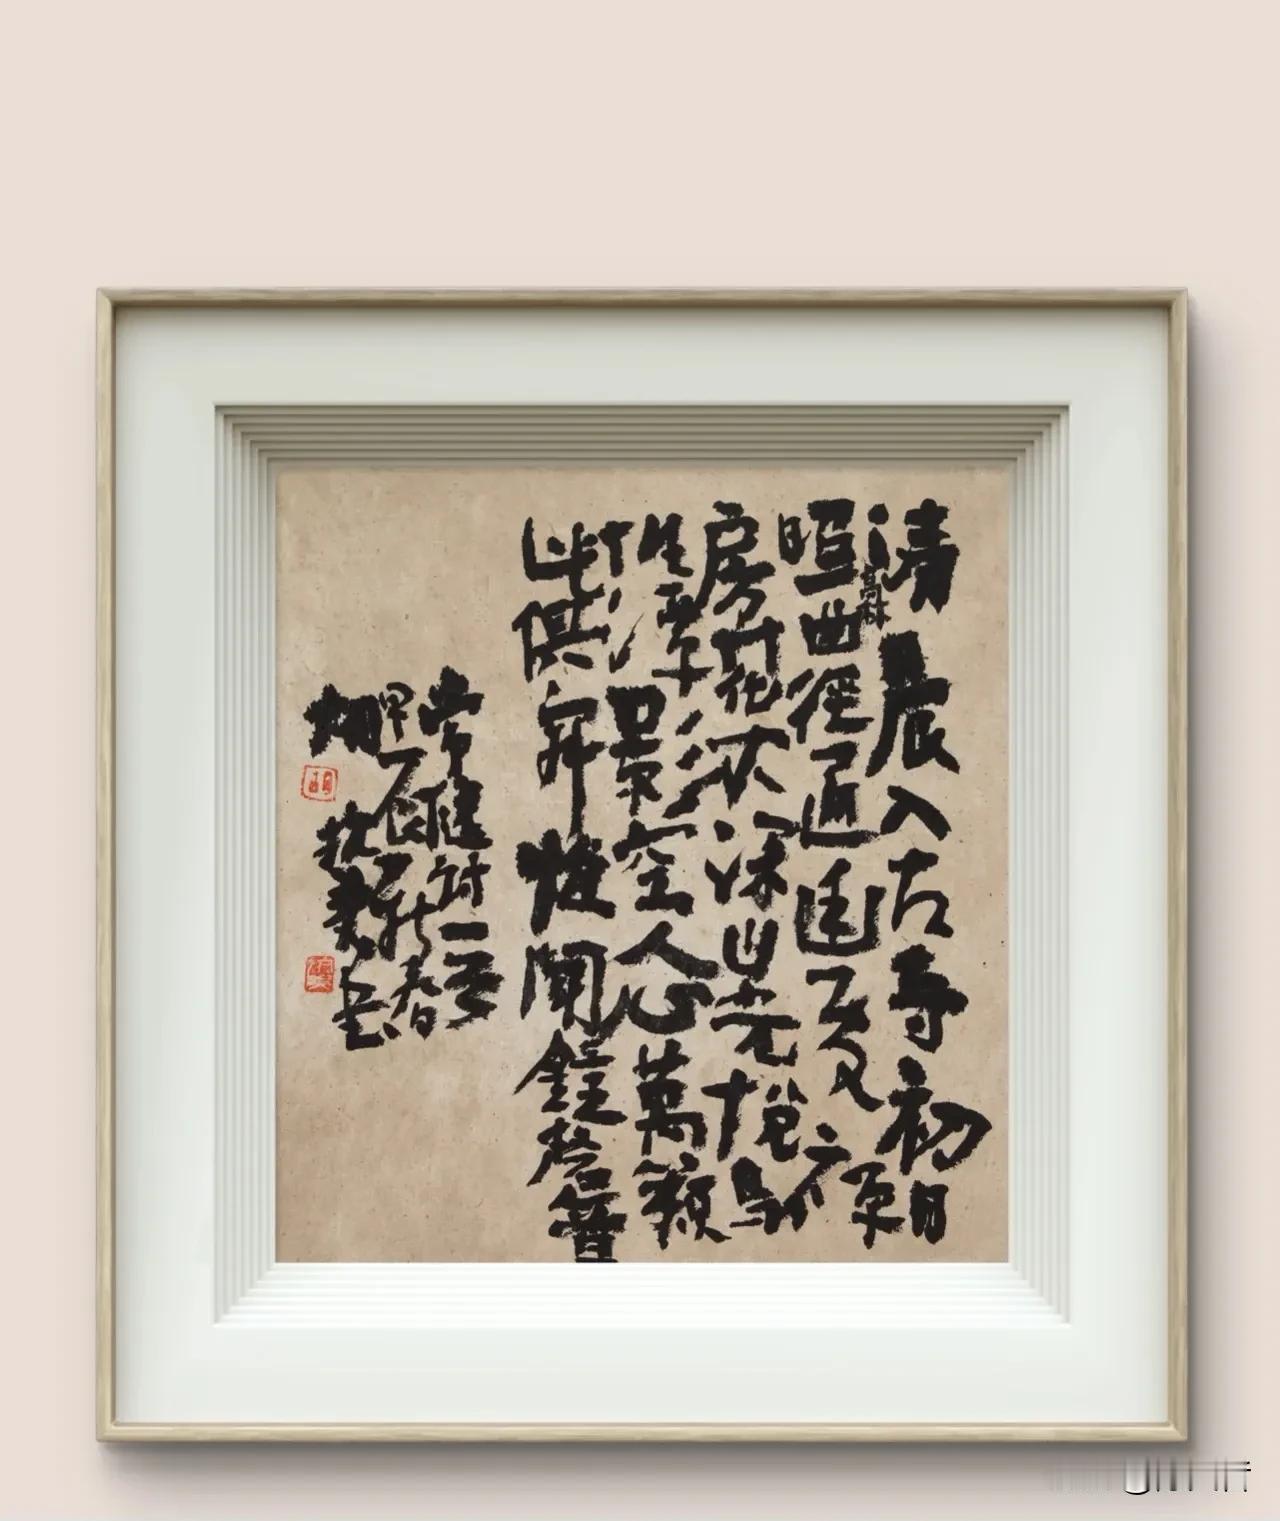 清晨入古寺初日
照高林曲徑通幽处禪
房花木深山光悅鳥
性潭影空人心萬籟
此俱寂惟聞鐘磬音
常建詩一首
甲辰新春
胡抗美书